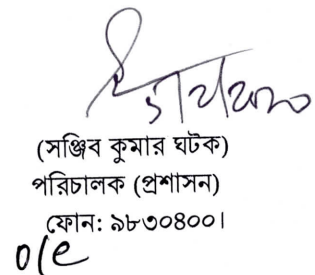 (সঞ্জিব কুমার ঘটক)
পরিচালক (প্রশাসন)
ফোন: ৯৮৩০৪০০।
o/c